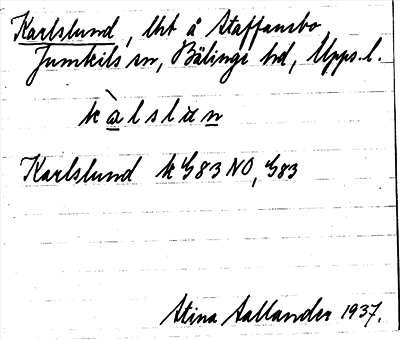 Karlslund, lht å Staffansbo,
Jumkils sn, Bälinge hd, Upps. l.
kàlslun
Karlslund k G83 NO, G83
Stina Aallander 1937.